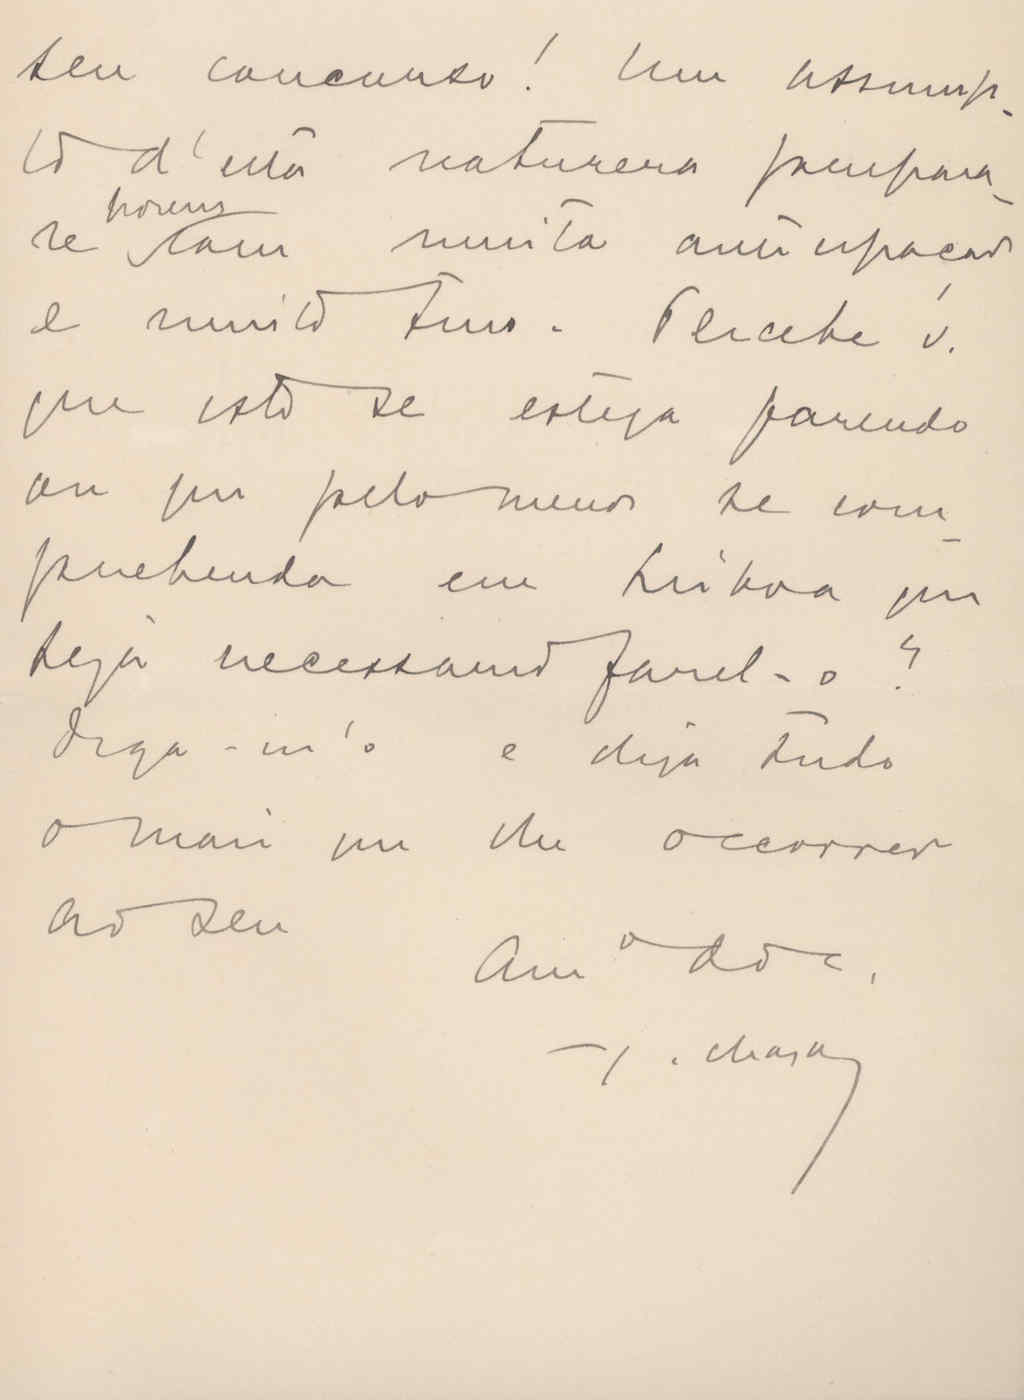 seu concurso! Um assump-
to d'esta natureza prepara-
se porem com muita antecipação
e muito tino. Percebe V.
que isto se esteja fazendo
ou que pelo menos se com-
prehenda em Lisboa que
seja necessario fazel-o?
Diga-m'o e diga tudo
o mais que lhe occorrer
ao seu
Am.º